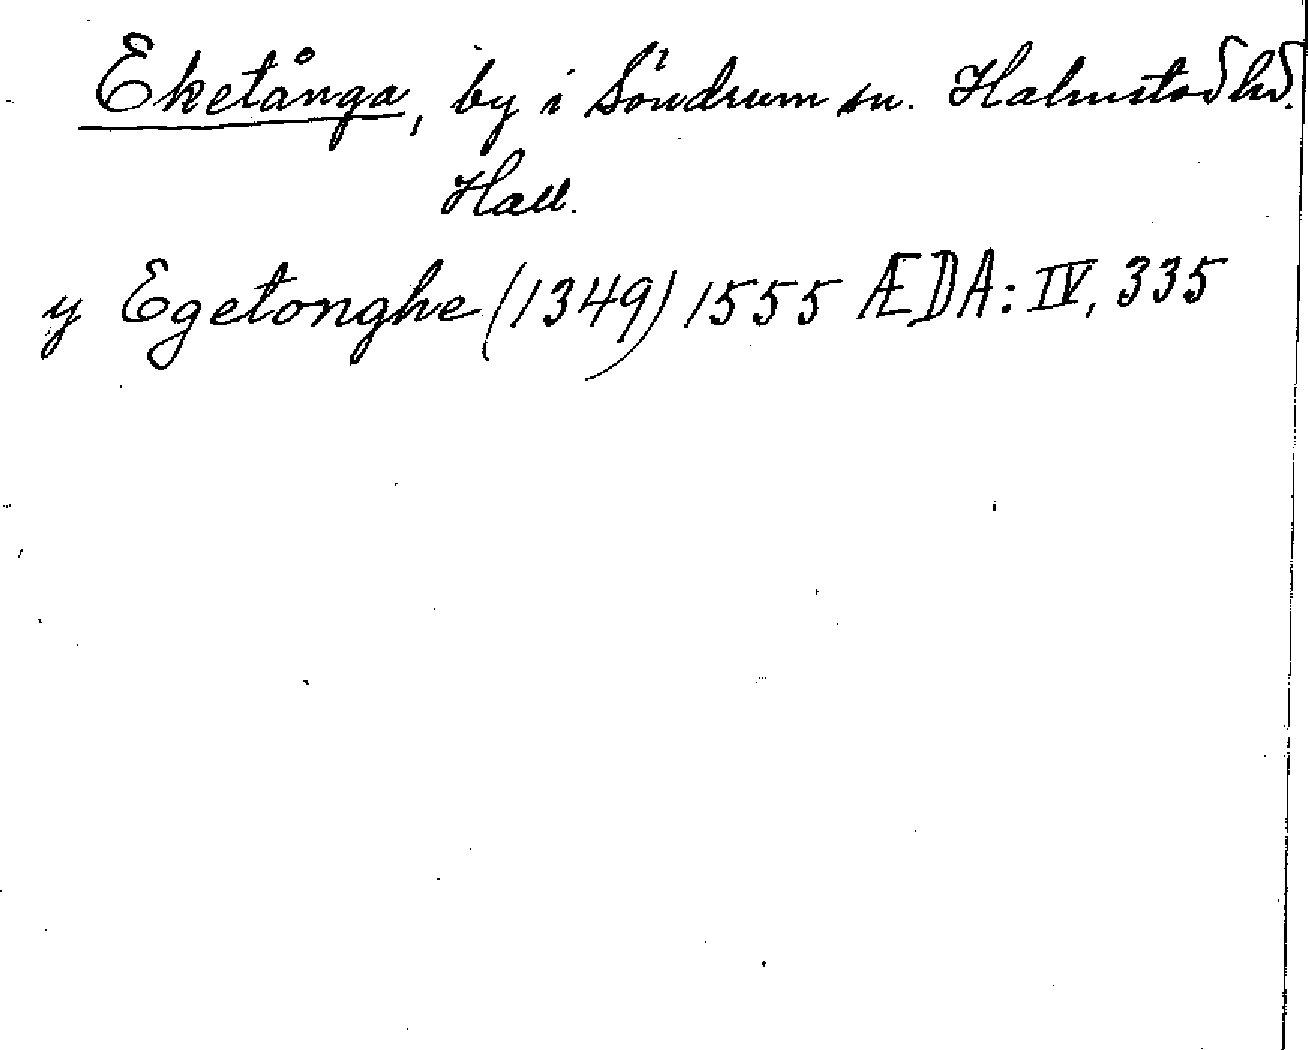 Eketånga, by i Söndrum sn. Halmstad hd.
Hall.
y Egetonghe (1349) 1555 ÆDA: IV, 335